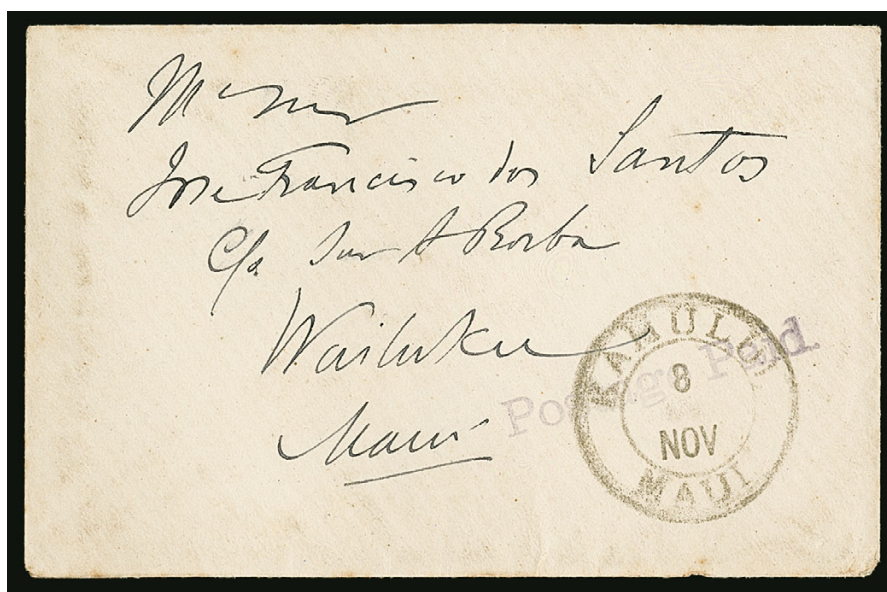 Jose Francisco dos Santos
C/o A Borba
Wailuku
Maui
Postage Paid.
KAHULUI
8
NOV
MAUI